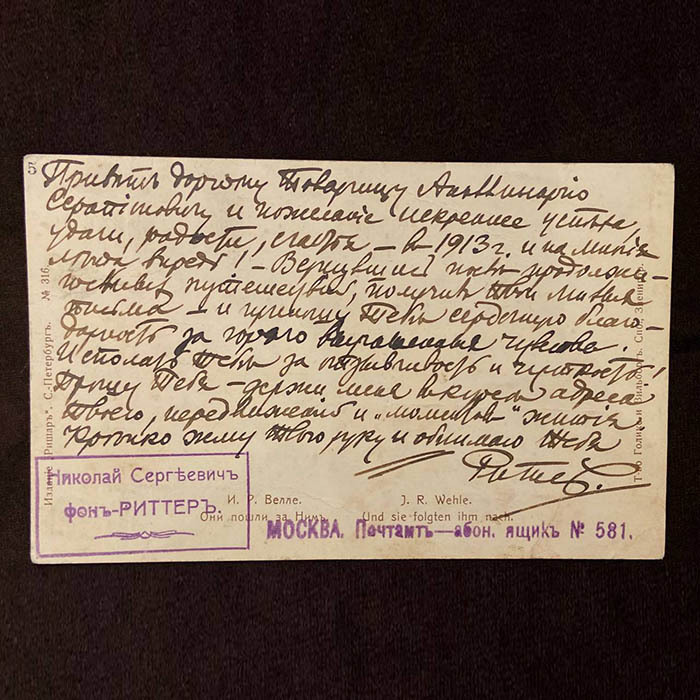 5
Привѣтъ дорогому Товарищу Апполинарію
и пожеланіе искреннее успѣха,
удачи, радости, счастья – въ 1913 г. и на многія
лѣта впредь! – Вернувшись изъ продолжи-
путешествія, получилъ Твои милыя
письма – и приношу Тебѣ сердечную благо-
дарность за горячо чувства.
Исполать Тебѣ за отзывчивость и чуткость!
Прошу Тебя – держи меня въ курсѣ адреса
Твоего, передвиженій и „моментовъ“ житія
Крѣпко жму Твою руку и обнимаю Тебя
Риттеръ.
Николай Сергѣевичъ
фонъ-РИТТЕРЪ.
И. Р. Велле.
Они пошли за Нимъ.
J. R. Wehle.
Und sie folgten ihm nach.
МОСКВА. Почтамтъ—абон. ящикъ № 581.
Изданіе „Ришаръ“. С.-Петербургъ. № 316
Т-во Голике и Вильборгъ. Спб., Звениг